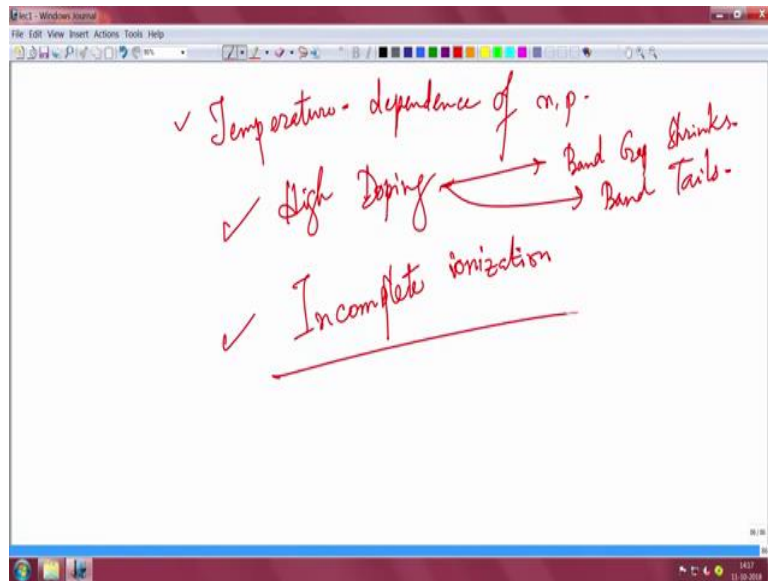 lec1 - Windows Journal
File Edit View Insert Actions Tools Help
✓ Temperature - dependence of n, p.
✓ High Doping → Band Gap Shrinks.
→ Band Tails.
✓ Incomplete ionization
14:17
11-10-2018